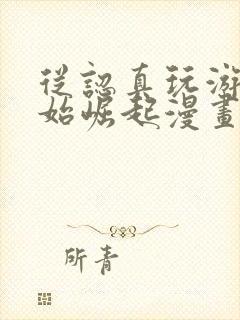 從認真玩游
始崛起漫畫
所青